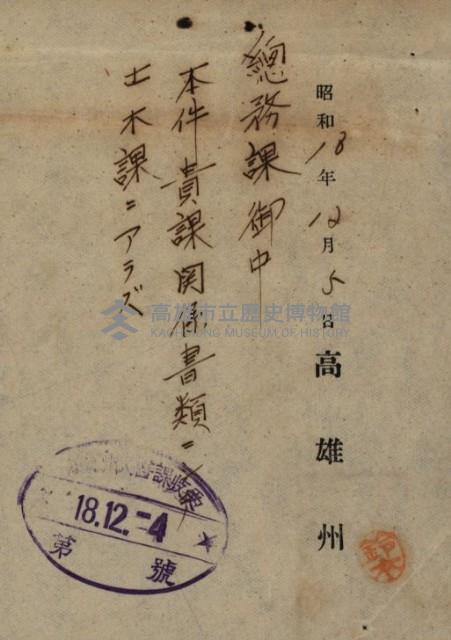 昭和18年12月5日 高雄州
總務課御中
本件貴課関係書類ニ
土木課ニアラズ
高雄市立歷史博物館
KAOHSIUNG MUSEUM OF HISTORY
18.12.-4
第 號
鈴木